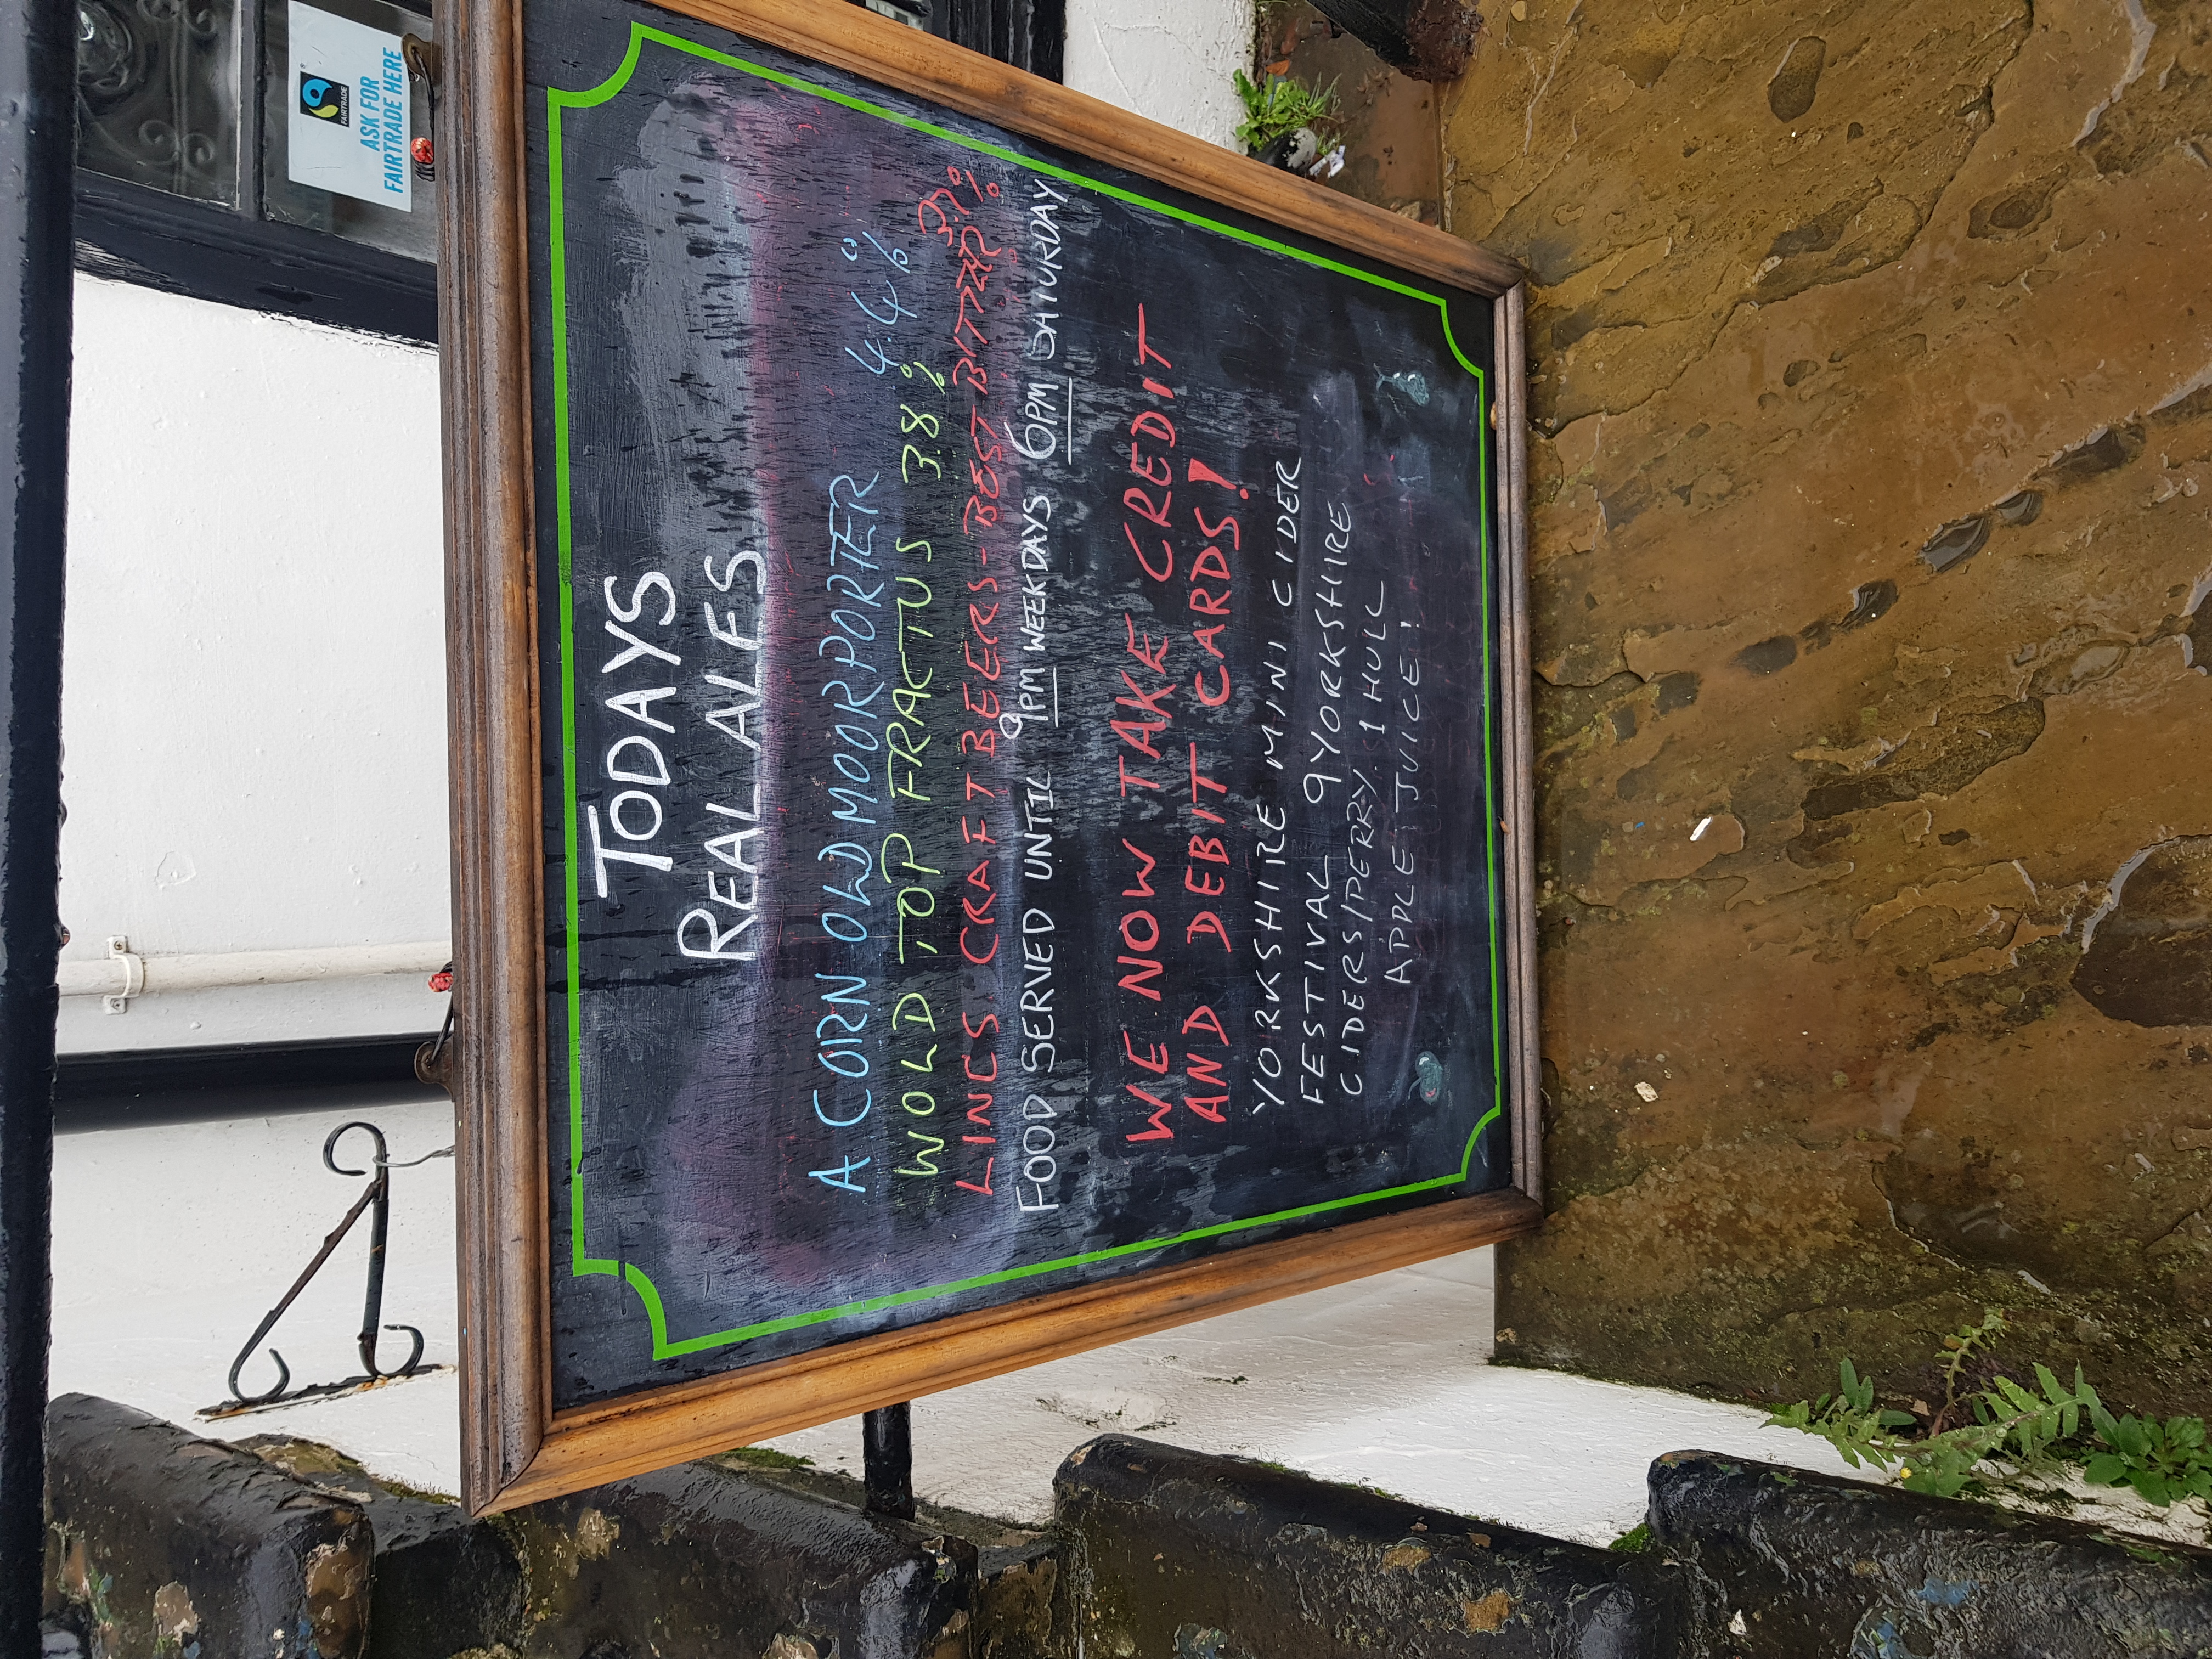 TODAYS
REAL ALES
ACORN OLD MOOR PORTER 4.4%
WOLD TOP FRACTUS 3.8%
LINCS CRAFT BEERS-BEST BITTER 3.7%
FOOD SERVED UNTIL 9PM WEEKDAYS 6PM SATURDAY
WE NOW TAKE CREDIT
AND DEBIT CARDS!
YORKSHIRE MINI CIDER
FESTIVAL 9 YORKSHIRE
CIDERS/PERRY. 1 HULL
APPLE JUICE!
FAIRTRADE
ASK FOR
FAIRTRADE HERE